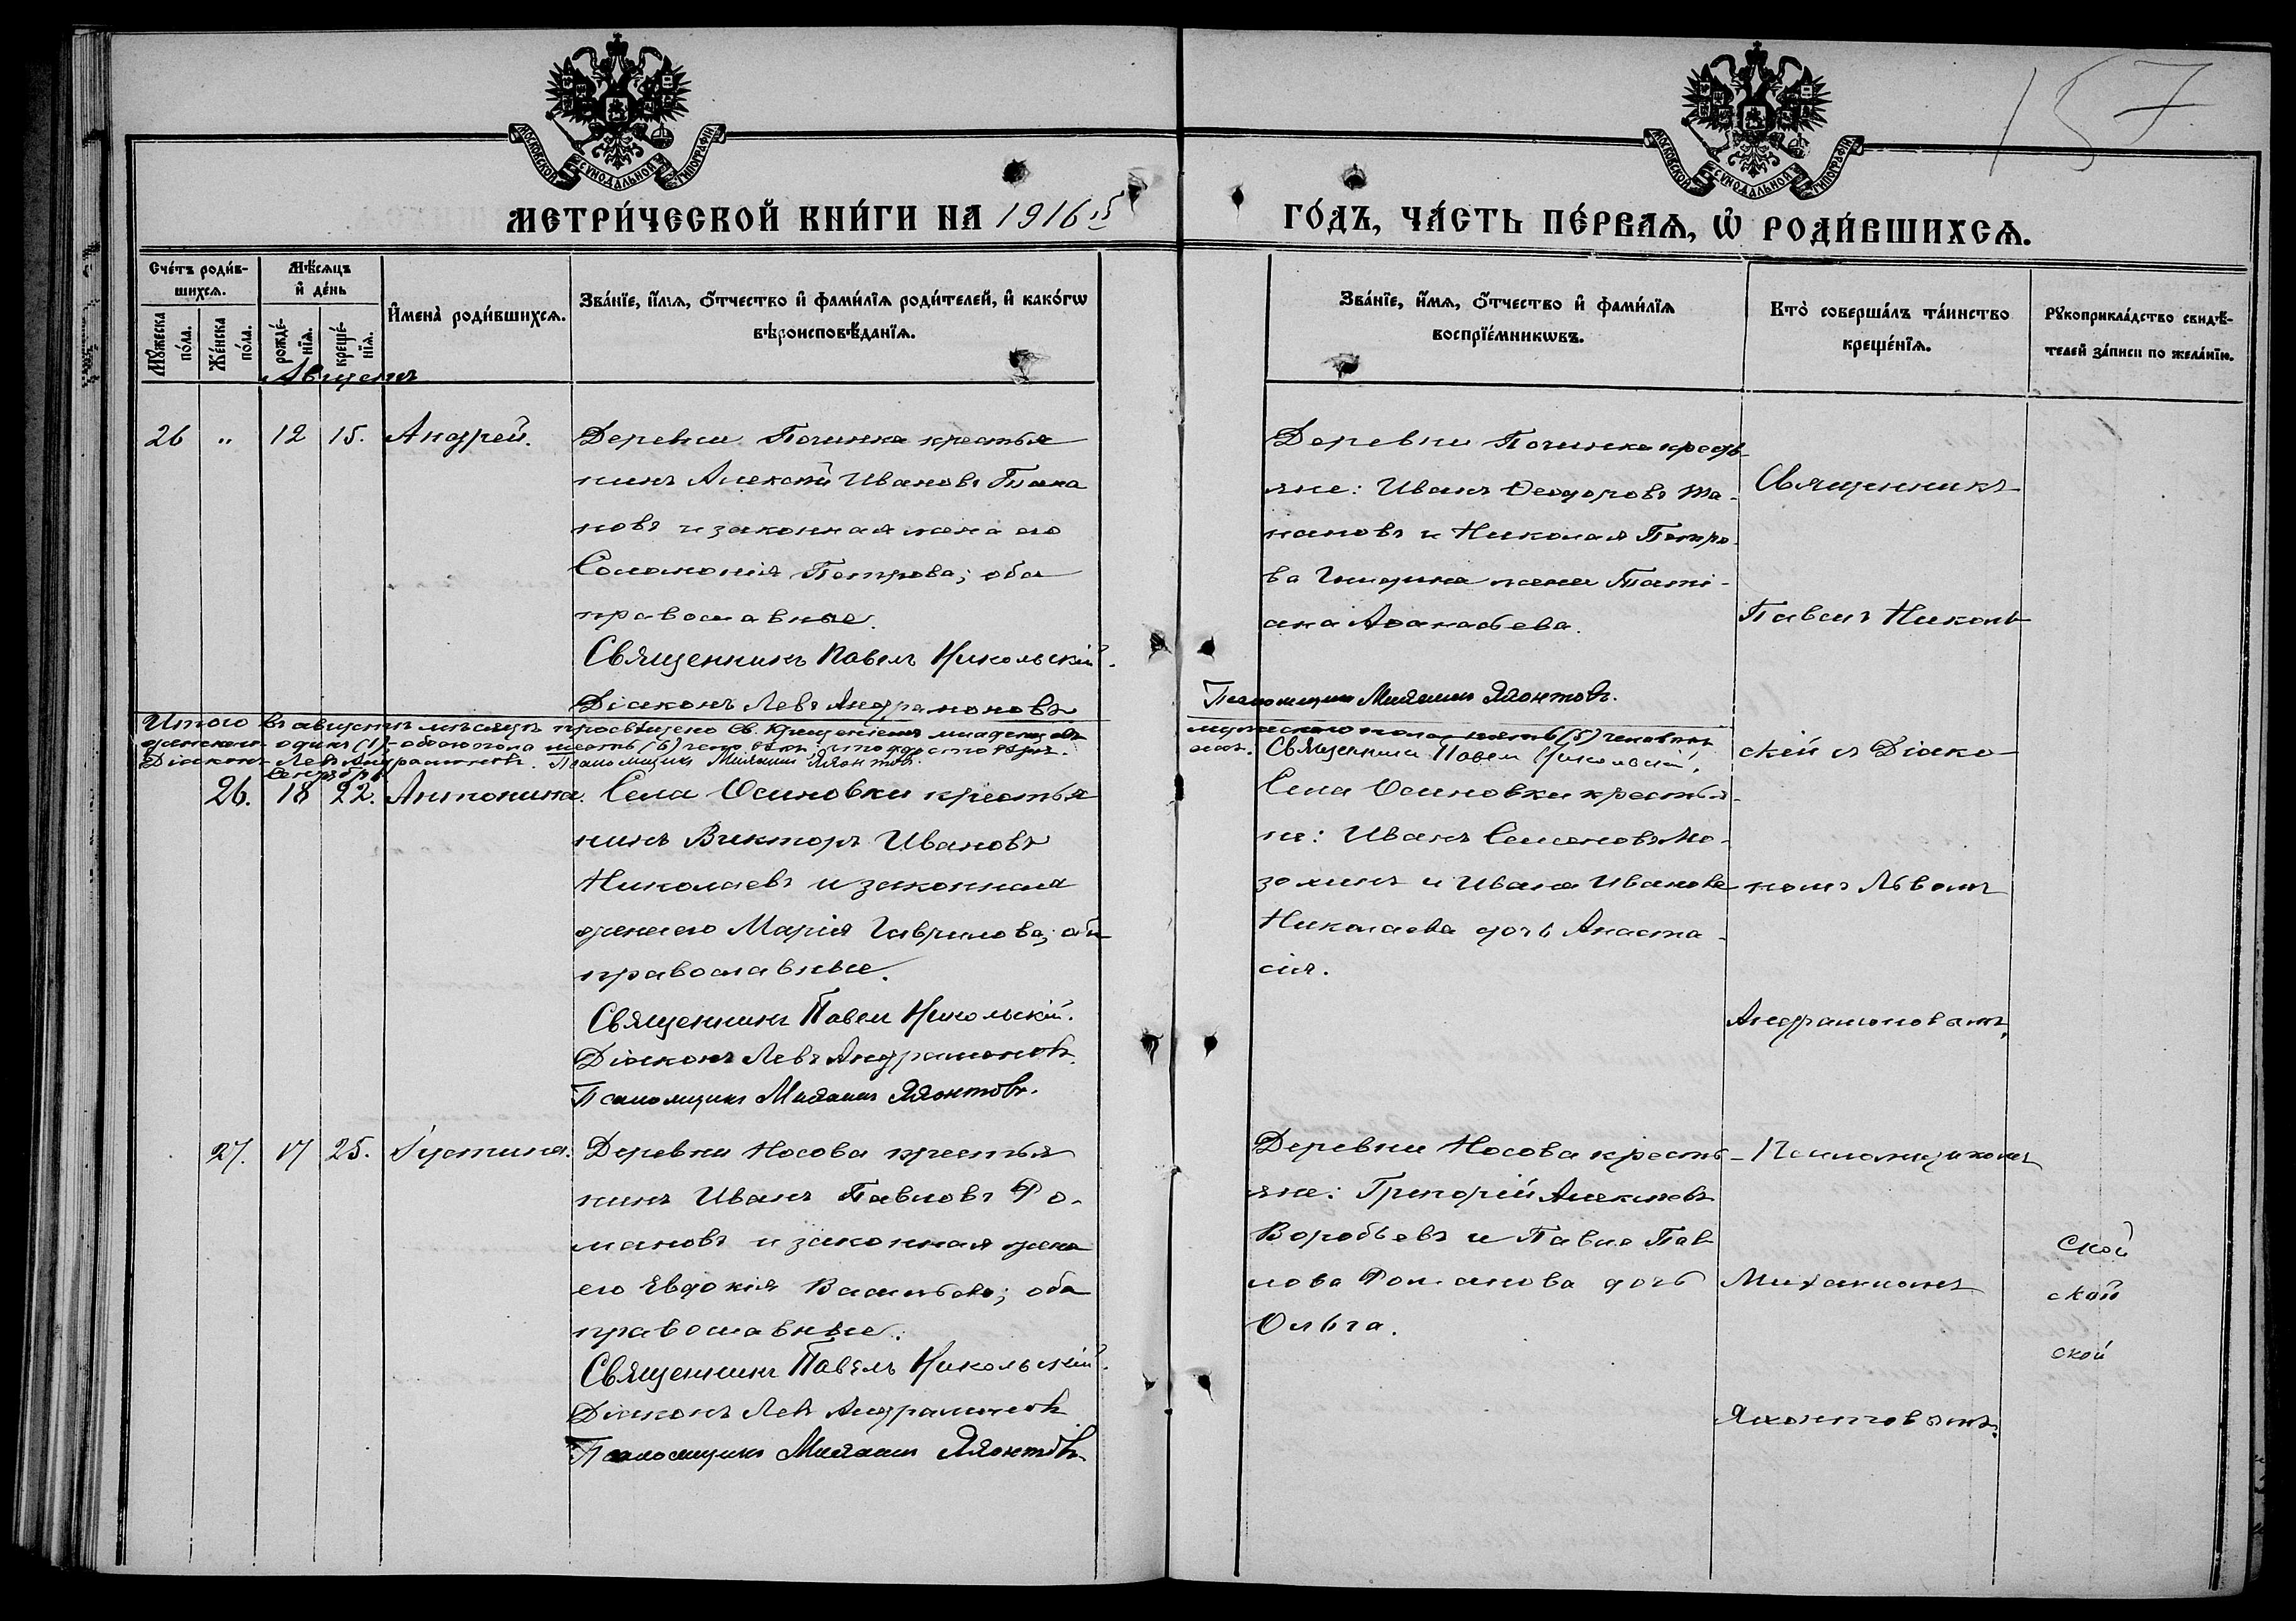 157
МОСКОВСКОЙ СУНОДАЛЬНОЙ ТИПОГРАФІИ
МОСКОВСКОЙ СУНОДАЛЬНОЙ ТИПОГРАФІИ
МЕТРИ́ЧЕСКОЙ КНИ́ГИ НА 1916й
ГО́ДЪ, ЧА́СТЬ ПЕ́РВАѦ, Ѡ҆ РОДИ́ВШИХСѦ.
Сче́тъ роди́в-
шихсѧ.
Мѣ́сѧцъ
и҆ де́нь
Мꙋ́жеска
по́ла.
Же́нска
по́ла.
рожде́-
нїѧ.
креще́-
нїѧ.
И҆мена̀ роди́вшихсѧ.
Зва́нїе, и҆́мѧ, ѻ҆́тчество и҆ фами́лїѧ роди́телей, и҆ како́гѡ
вѣроисповѣ́данїѧ.
Зва́нїе, и҆́мѧ, ѻ҆́тчество и҆ фами́лїѧ
воспрїе́мникѡвъ.
Кто̀ соверша́лъ та́инство
креще́нїѧ.
Рꙋкоприкла́дство свидѣ́-
телей за́писи по жела́нїю.
Августъ
26 " 12 15. Андрей.
Деревни Починка крестья
нинъ Алексій Ивановъ Тама
новъ и законная жена его
Соломонія Петрова; оба
православные.
Священникъ Павелъ Никольскій.
Діаконъ Левъ Андрамоновъ
Деревни Починка кресть
яне: Иванъ Ѳеодоровъ
и Николая Петро
ва жена Таті-
ана Аѳанасьева.
Псаломщикъ Михаилъ Яхонтовъ.
Священникъ
Павелъ Николь
скій съ Діако-
номъ Львомъ
Андрамоновымъ,
Псаломщикомъ
Михаиломъ
Яхонтовымъ.
Итого въ августѣ мѣсяцѣ просвѣщено Св. Крещеніемъ младенцевъ
мужескаго пола пять (5) человѣкъ
женскаго один (1), обоего пола шесть (6) человѣкъ, что удостовѣр.
емъ. Священникъ Павелъ Никольскій.
Діаконъ Левъ Андрамоновъ. Псаломщикъ Михаилъ Яхонтовъ.
Сентябрь
26. 18 22. Антонина.
Села Осиновки крестья
нинъ Викторъ Ивановъ
Николаевъ и законная
жена его Марія Гаврилова; оба
православные.
Священникъ Павелъ Никольскій.
Діаконъ Левъ Андрамоновъ.
Псаломщикъ Михаилъ Яхонтовъ.
Села Осиновки крестья-
не: Иванъ Семеновъ Мо-
золинъ и Ивана Иванова
Николаева дочь Анаста-
сія.
27. 17 25. Іустина.
Деревни Носова крестья
нинъ Иванъ Павловъ Ро-
мановъ и законная жена
его Евдокія Васильева; оба
православные.
Священникъ Павелъ Никольскій.
Діаконъ Левъ Андрамоновъ
Псаломщикъ Михаилъ Яхонтовъ.
Деревни Носова кресть-
яне: Григорій Алексѣевъ
Воробьевъ и Павла Пав
лова Романова дочь
Ольга.
ской
ской
ской